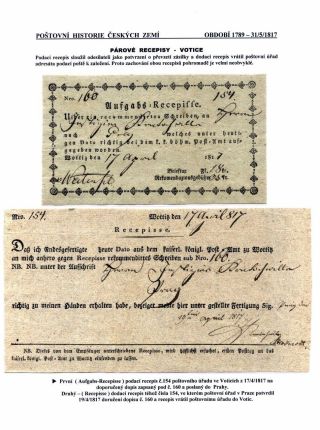 POŠTOVNÍ HISTORIE ČESKÝCH ZEMÍ OBDOBÍ 1789 – 31/5/1817
PÁROVÉ RECEPISY - VOTICE
Podací recepis sloužil odesílateli jako potvrzení o převzetí zásilky a dodací recepis vrátil poštovní úřad
adresáta podací poště k založení. Proto zachování obou recepisů pohromadě je velmi neobvyklé.
Nro. 160 154.
Aufgabs-Recepisse.
Ueber ein recommendirtes Schreiben, an Herrn
nach Prag welches unter heutigem
Dato richtig bei dem k. k. böhm. Post-Amt aufgegeben worden.
Wottitz 17 April 1817
Nro. 154. Wottitz 17 April 817
Recepisse.
Daß ich Endesgefertigte heute Dato aus dem kaiserl. königl. Post-Amt zu Wottitz
an mich anhero gegen Recepisse rekommendirtes Schreiben sub Nro. 160.
NB. NB. unter der Aufschrift Herrn
Prag
richtig zu meinen Händen erhalten habe, bezeiget meine hier unter gestellte Fertigung Sig. Prag den
19ten April 817
NB. Dieses von dem Empfänger unterschriebene Recepisse, wird höflichst ersuchet, ersten Posttag an das
kaiserl. königl. Post-Amt zu Wottitz einzusenden.
► První ( Aufgabs-Recepisse ) podací recepis č.154 poštovního úřadu ve Voticích z 17/4/1817 na
doporučený dopis zapsaný pod č. 160 a poslaný do Prahy.
Druhý –( Recepisse ) dodací recepis téhož čísla 154, ve kterém poštovní úřad v Praze potvrdil
19/4/1817 doručení dopisu č. 160 a recepis vrátil poštovnímu úřadu do Votic.